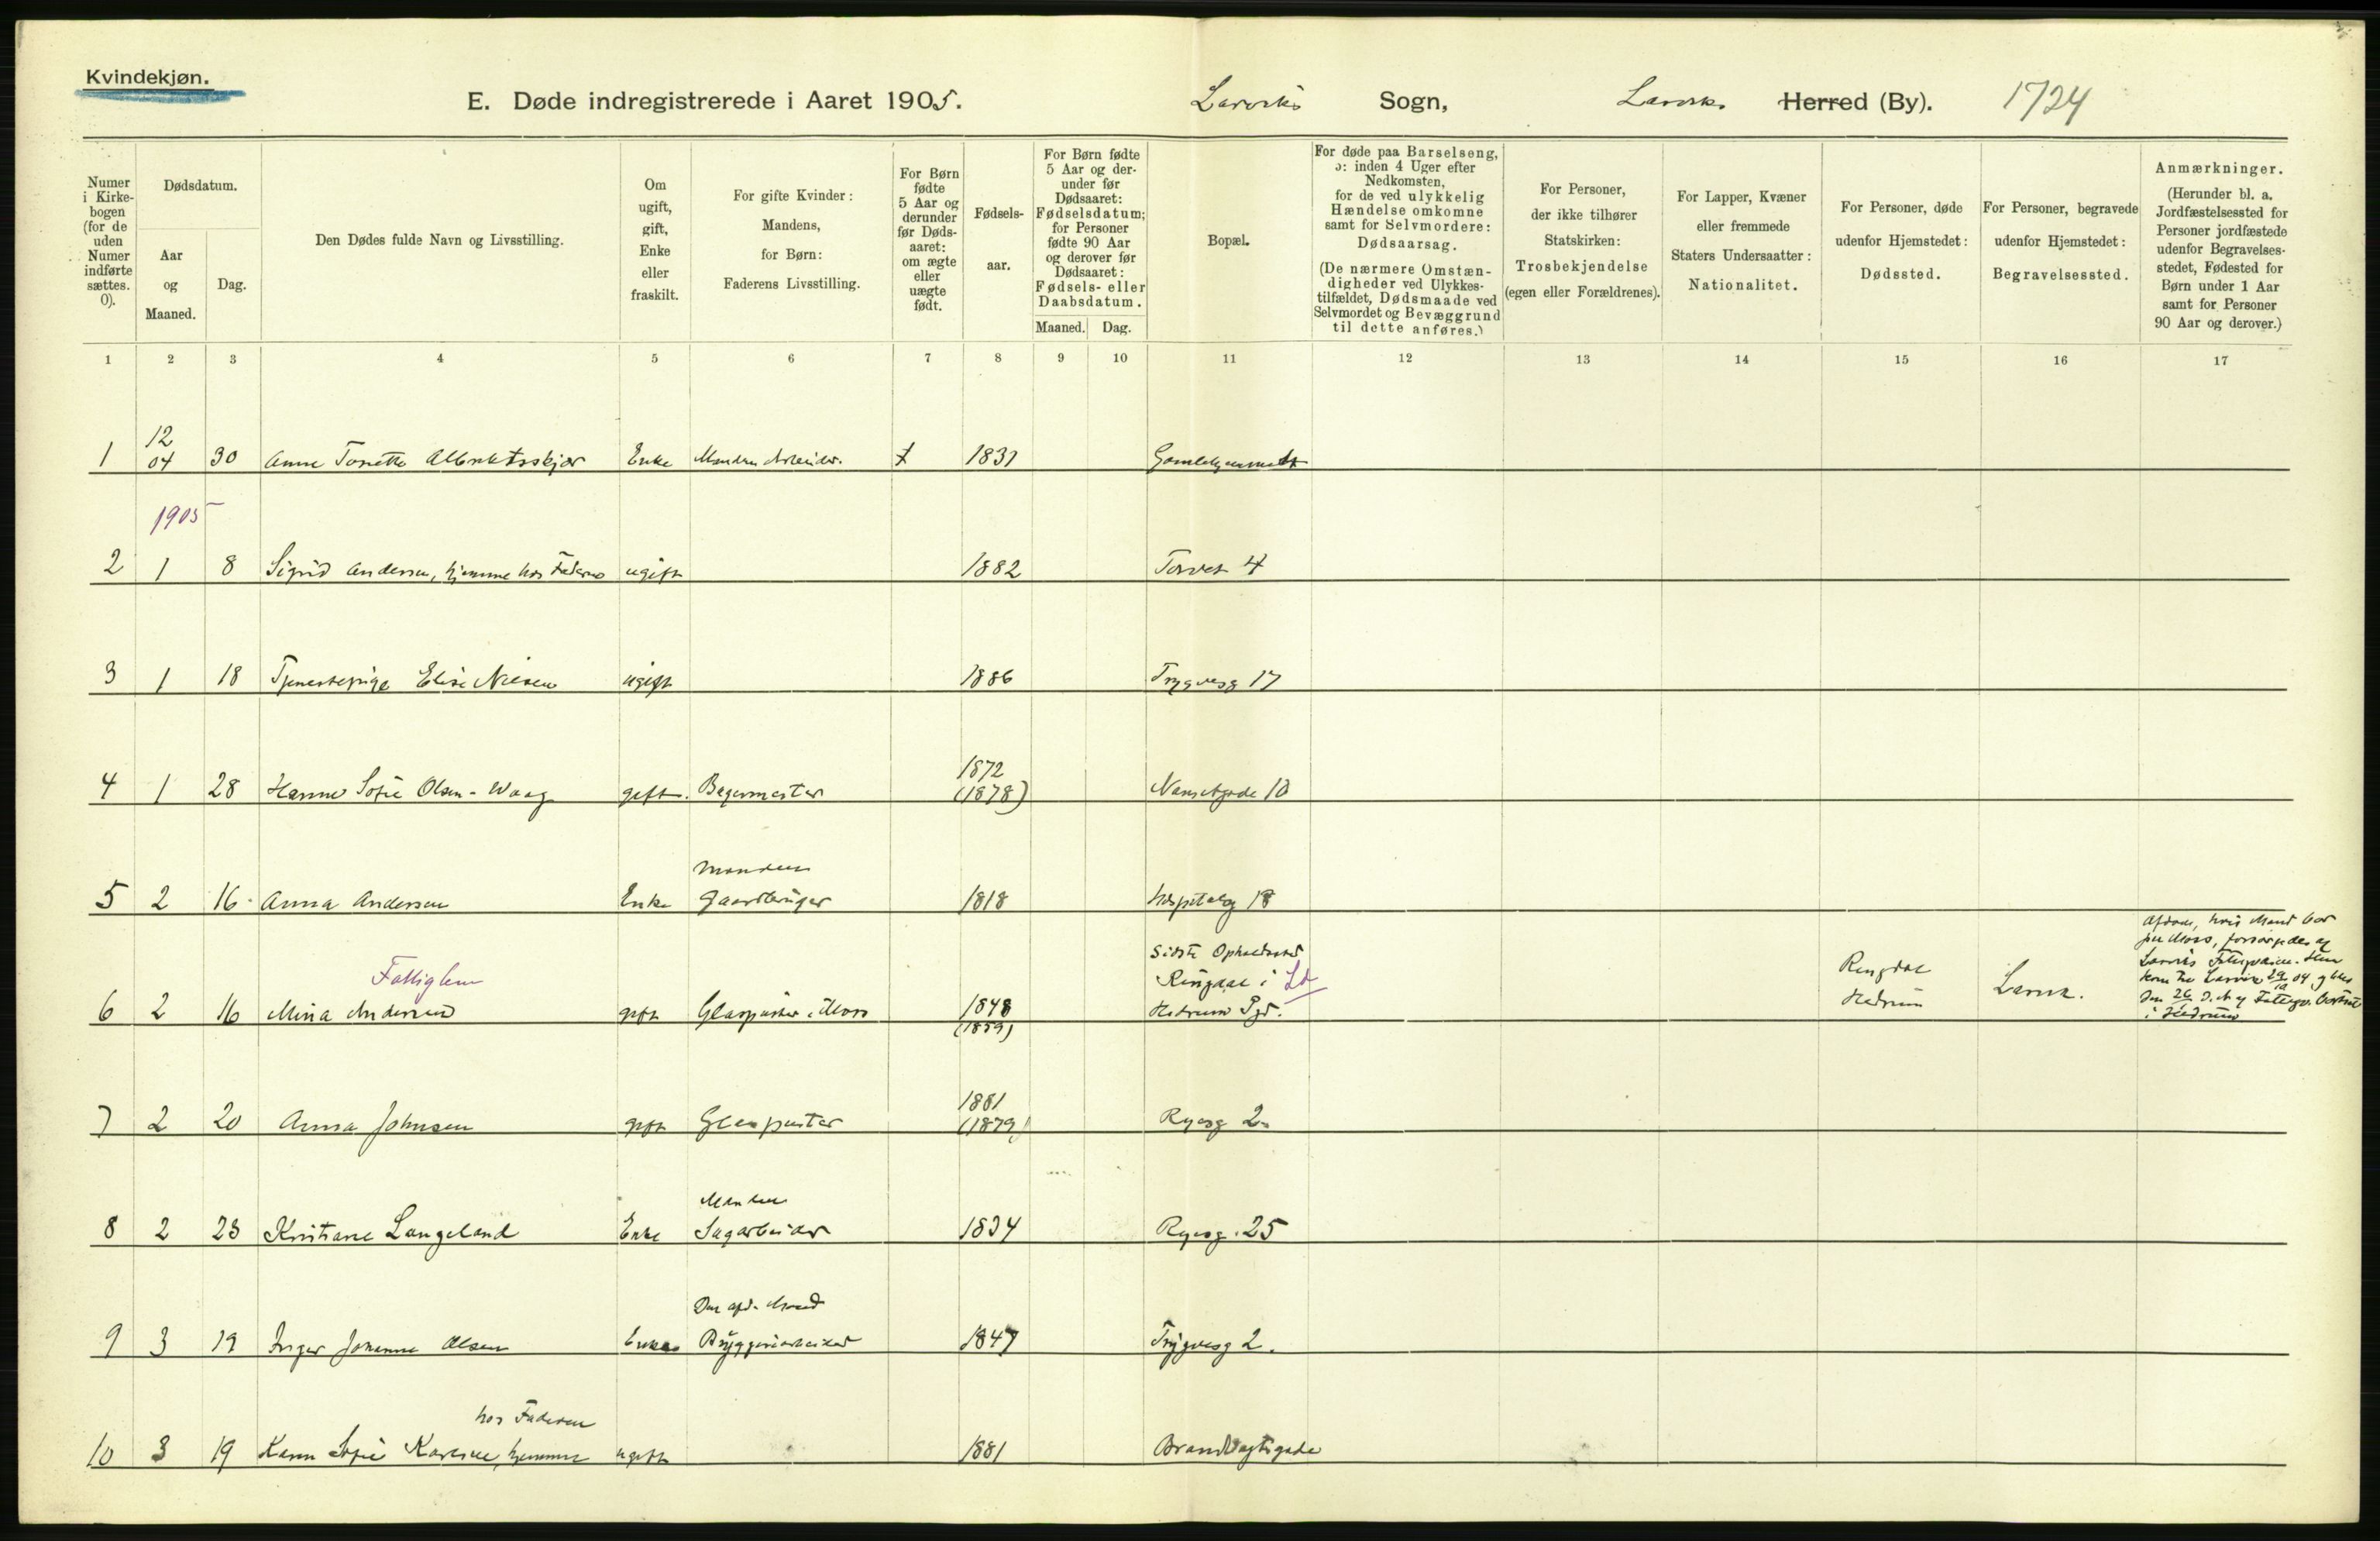 Kvindekjøn.
E. Døde indregistrerede i Aaret 1905. Larviks Sogn, Larviks Herred (By). 1724
Numer i Kirkebogen (for de uden Numer indførte sættes. 0).
Dødsdatum.
Aar og Maaned.
Dag.
Den Dødes fulde Navn og Livsstilling.
Om ugift, gift, Enke eller fraskilt.
For gifte Kvinder: Mandens, for Børn: Faderens Livsstilling.
For Børn fødte 5 Aar og derunder før Dødsaaret: om ægte eller uægte født.
Fødselsaar.
For Børn fødte 5 Aar og derunder før Dødsaaret: Fødselsdatum; for Personer fødte 90 Aar og derover før Dødsaaret: Fødsels- eller Daabsdatum.
Maaned. Dag.
Bopæl.
For døde paa Barselseng, ɔ: inden 4 Uger efter Nedkomsten, for de ved ulykkelig Hændelse omkomne samt for Selvmordere: Dødsaarsag.
(De nærmere Omstændigheder ved Ulykkestilfældet, Dødsmaade ved Selvmordet og Bevæggrund til dette anføres.)
For Personer, der ikke tilhører Statskirken: Trosbekjendelse (egen eller Forældrenes).
For Lapper, Kvæner eller fremmede Staters Undersaatter: Nationalitet.
For Personer, døde udenfor Hjemstedet: Dødssted.
For Personer, begravede udenfor Hjemstedet: Begravelsessted.
Anmærkninger.
(Herunder bl. a. Jordfæstelsessted for Personer jordfæstede udenfor Begravelsesstedet, Fødested for Børn under 1 Aar samt for Personer 90 Aar og derover.)
1 2 3 4 5 6 7 8 9 10 11 12 13 14 15 16 17
12
1 04 30 Anne Tonette Enke Manden Arbeider. 1831 Gamlehjemmet
1905
2 1 8 Sigrid Andersen, hjemme hos Faderen ugift 1882 Torvet 4
3 1 18 Tjenestepige Elise Nilsen ugift 1886 Trygvesg 17
1872
4 1 28 Hanne Sofie Olsen-Waag gift. Bagermester (1878) Nansetgade 10
Manden
5 2 16 Anna Andersen Enke Gaardbruger 1818 Hospitalg 18
Sidste Opholdssted
Fattiglem Ringdal i Ld Ringdal
6 2 16 Mina Andersen gift Glaspuster i Moss 1848 Hedrum Pgd. Hedrum Larvik.
(1859)
Afdøde, hvis Mand bor
paa Moss, forsørgedes af
Larviks Fattigvæsen. Hun
kom til Larvik 29/10 04 og blev
den 26/ D. A af Fattigv. bortsat
i Hedrum
1881
7 2 20 Anna Johnsen gift Glaspuster (1879) Ryesg 2.
Manden
8 2 23 Kristiane Langeland Enke Sagarbeider 1834 Ryesg. 25
Den afd. Mand
9 3 19 Inger Johanne Olsen Enke Bryggeriarbeider 1847 Trygvesg 2.
hos Faderen
10 3 19 Karen Sofie hjemme ugift 1881 Brandvagtsgade